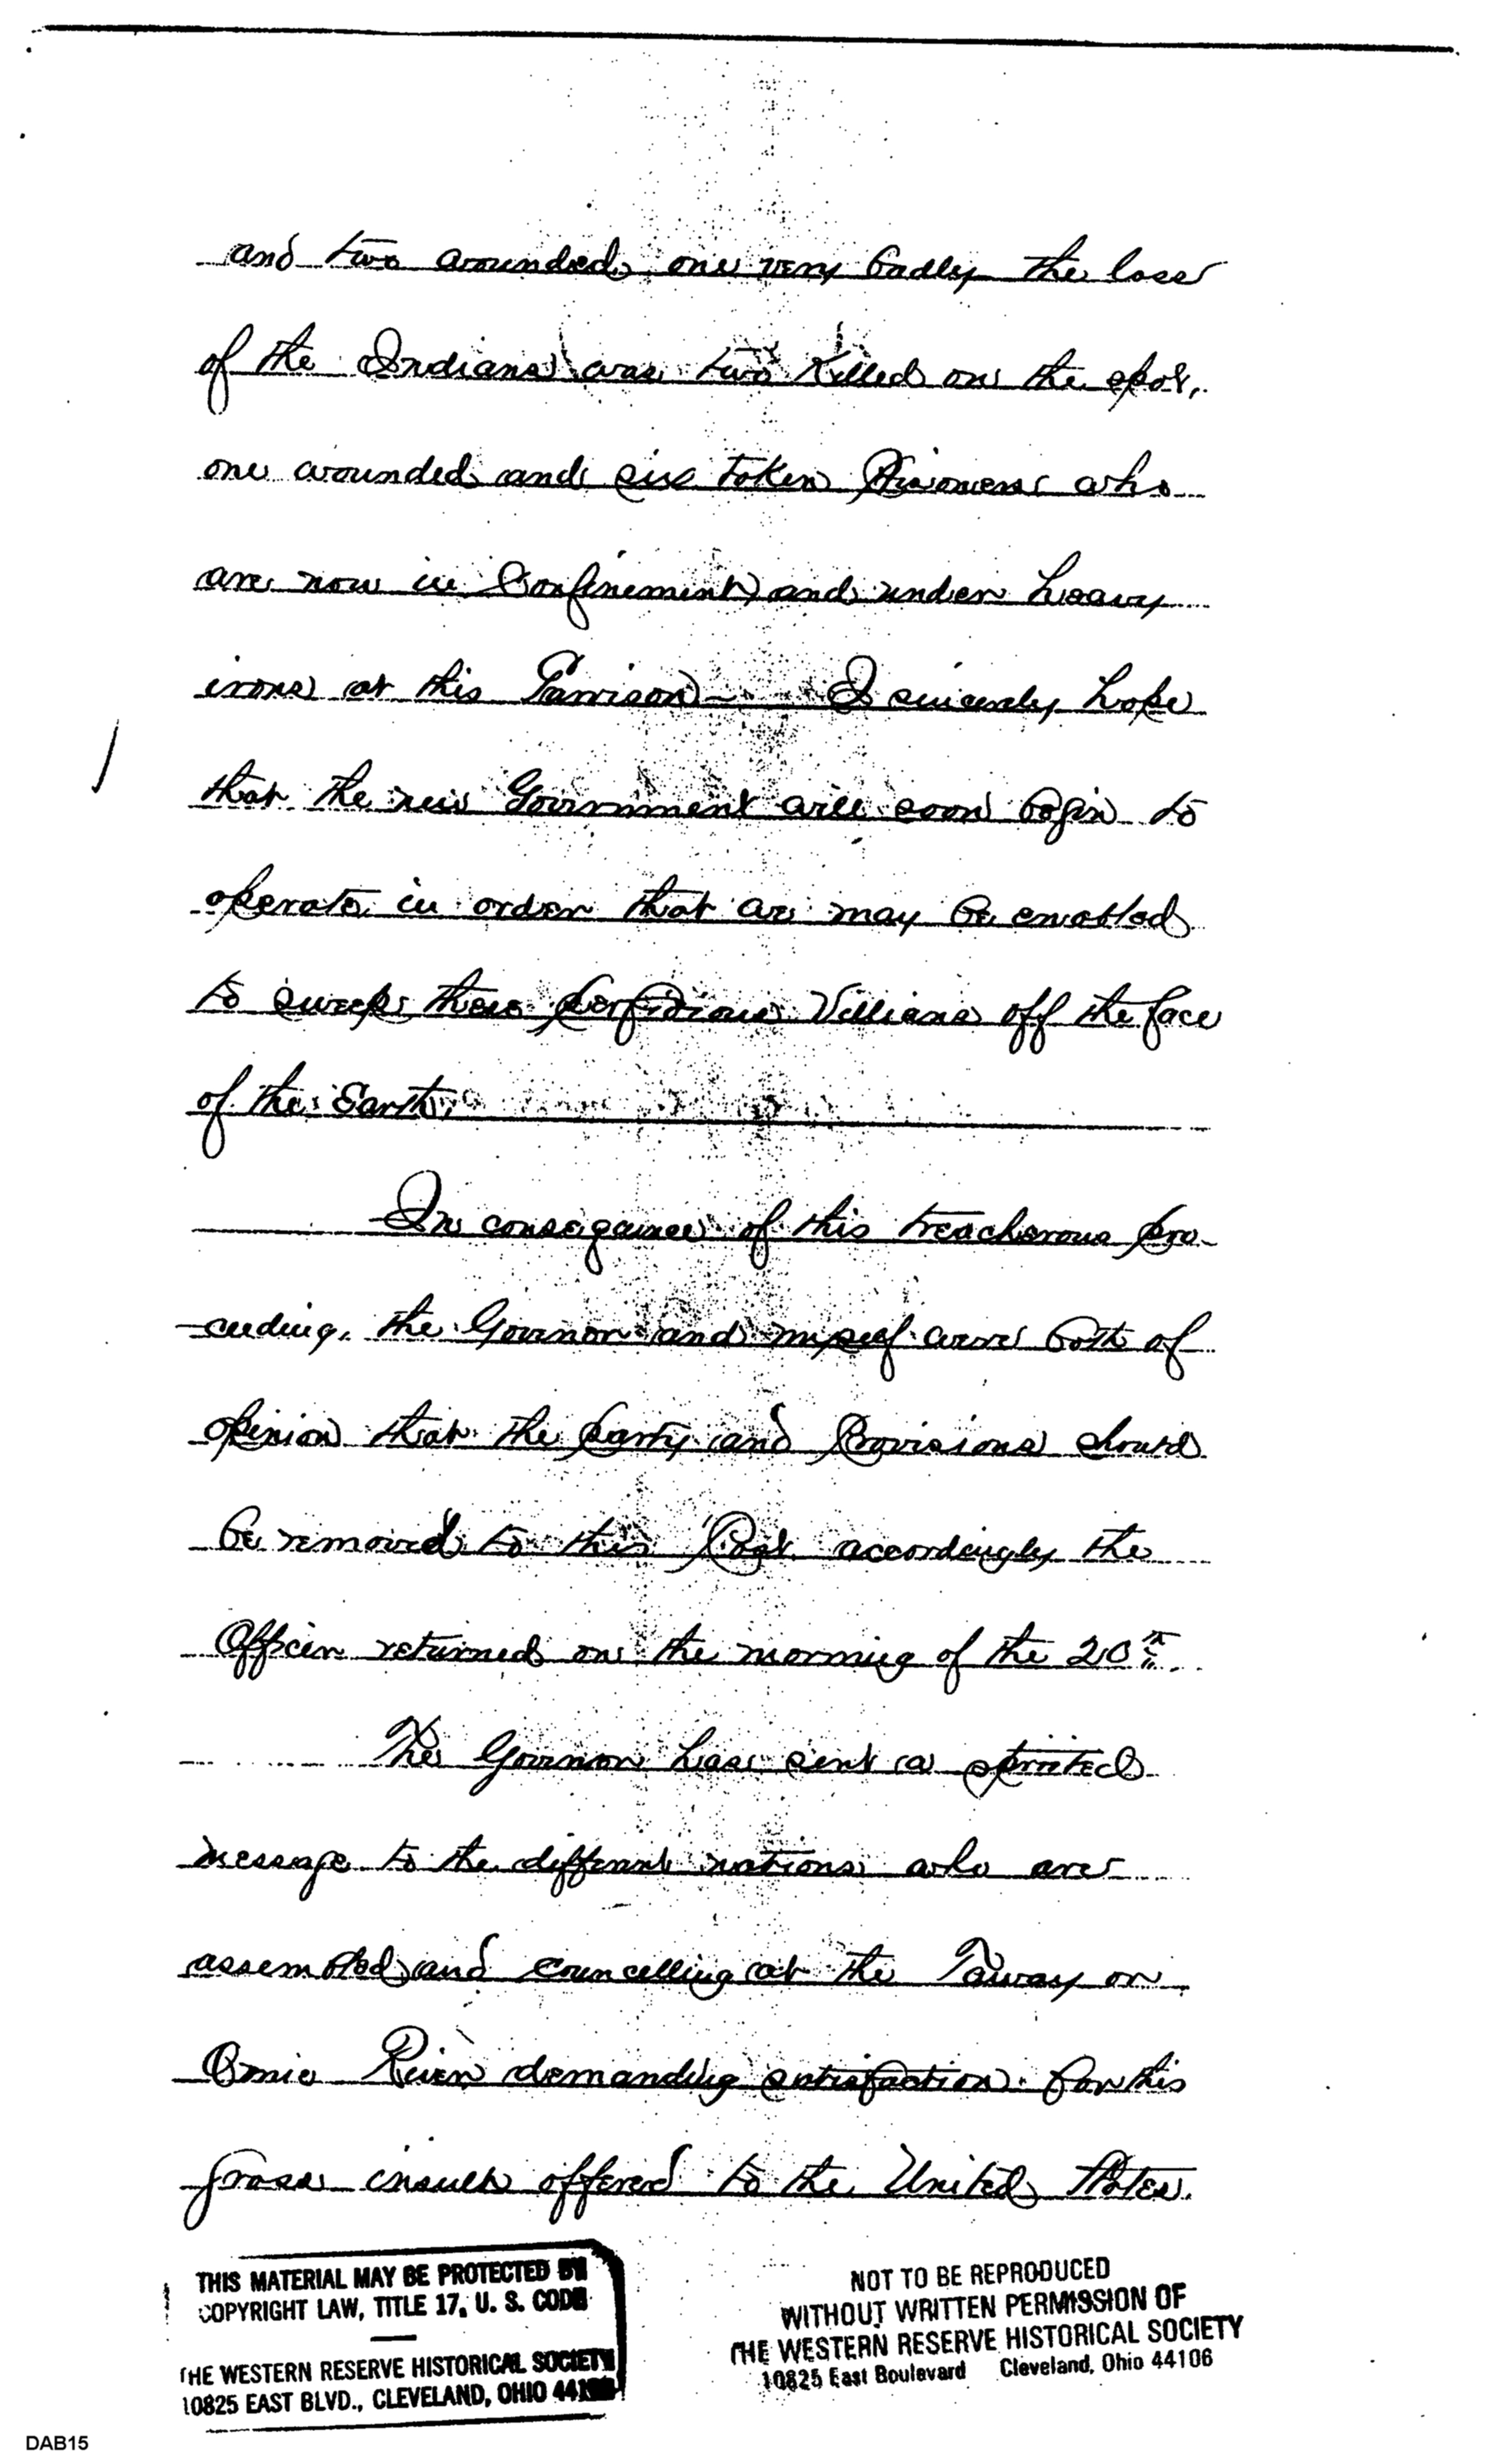 and two wounded, one very badly the loss
of the Indians was two Killed on the spot,
one wounded and six taken Prisoners who
are now in Confinement and under heavy
irons at this Garrison — I sincerely hope
that the new Government will soon begin to
operate in order that we may be enabled
to sweep these perfidious Villians off the face
of the Earth.
In consequence of this treacherous pro-
-ceeding, the Governor and myself were both of
opinion that the party and Provisions should
be removed to this Post accordingly the
Officer returned on the morning of the 20th
The Governor has sent a spirited
message to the different nations who are
assembled and councelling at the Taway or
Omie River demanding satisfaction for this
gross insult offered to the United States.
THIS MATERIAL MAY BE PROTECTED BY
COPYRIGHT LAW, TITLE 17, U. S. CODE
THE WESTERN RESERVE HISTORICAL SOCIETY
10825 EAST BLVD., CLEVELAND, OHIO 44106
NOT TO BE REPRODUCED
WITHOUT WRITTEN PERMISSION OF
THE WESTERN RESERVE HISTORICAL SOCIETY
10825 East Boulevard Cleveland, Ohio 44106
DAB15